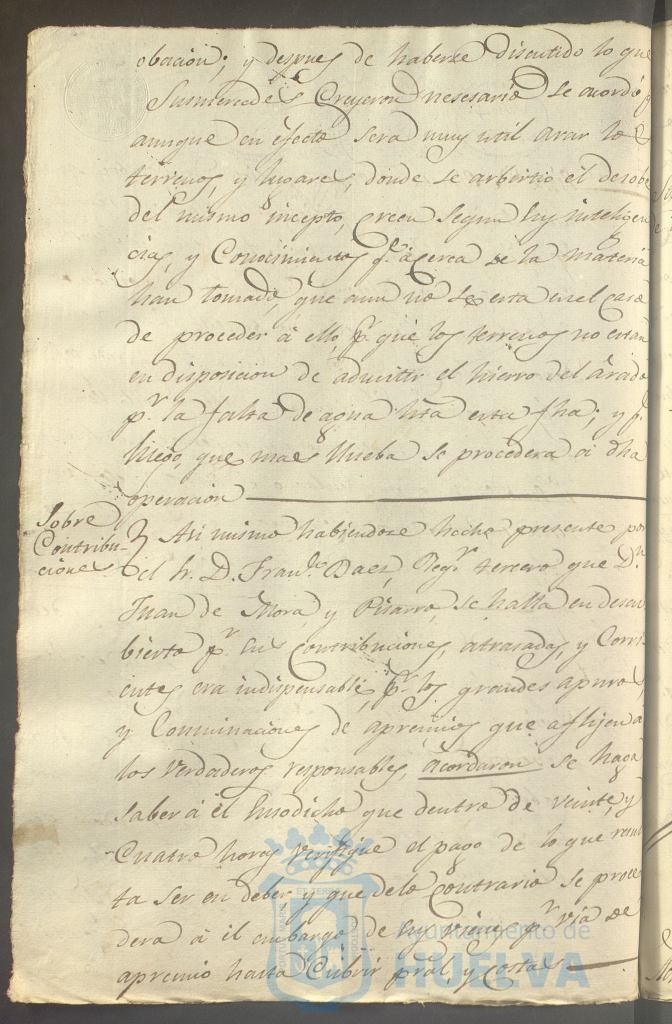 obacion; y despues de haberse discutido lo que
Susmercedes Creyeron nesesario se acordó q
aunque en efecto sera muy util arar los
terrenos, y lugares, donde se advirtio el desobe
del mismo incepto, creen segun sus inteligen
cias, y Conocimientos q.e acerca de la materia
han tomado, que aun no se esta en el caso
de proceder á ello, p.r que los terrenos no estan
en disposicion de admitir el hierro del arado
p.r la falta de agua hta esta fha; y q.
luego, que mas llueba se procedera á dha
operacion
Sobre
Contribu-
ciones
Asi mismo habiendose hecho presente por
el Sr. D. Fran.co Baez, Reg.r tercero que D.n
Juan de Mora, y Pisarro, se halla en descu
bierto p.r sus Contribuciones, atrasadas, y Corri
entes era indispensable, p.r los grandes apuros,
y Conminaciones de apremios que aflijen a
los Verdaderos responsables, acordaron se haga
saber á el Susodicho que dentro de veinte, y
Cuatro horas Verifique el pago de lo que resul
ta ser en deber y que delo Contrario se proce
dera á el embargo de sus vienes p.r via de
apremio hasta Cubrir pral y Costas
Ayuntamiento de
HUELVA